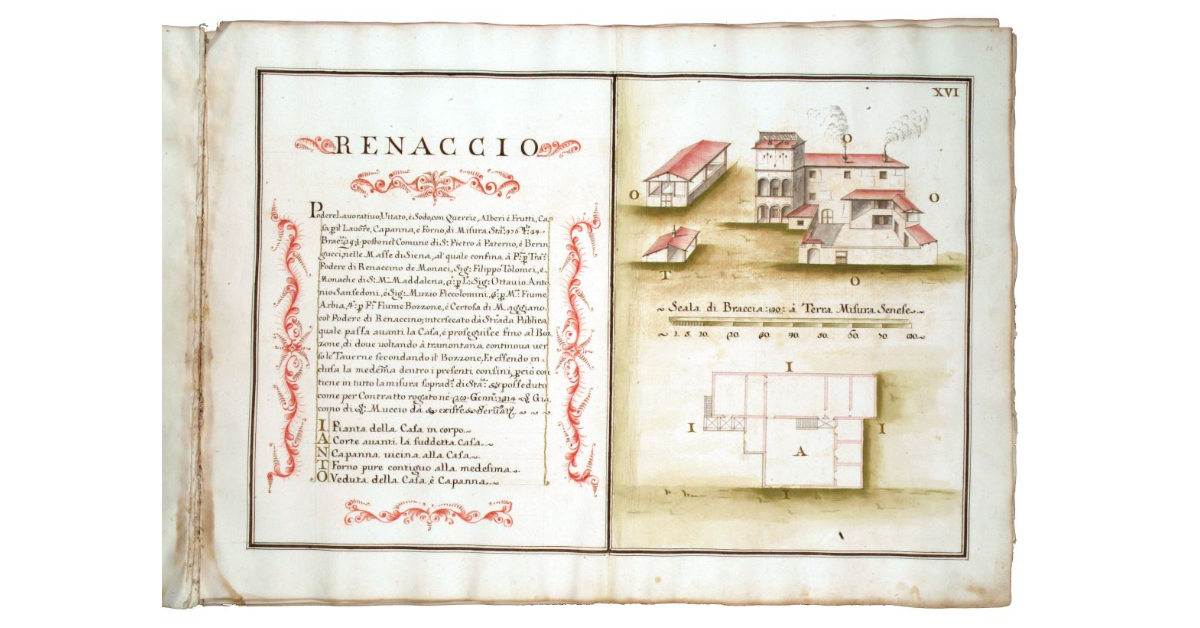 RENACCIO
Podere Lavorativo, Vitato, è Sodo, con Quercie, Alberi è Frutti, Ca
sa, Capanna, è Forno, di Misura
posto nel Comune di S: Pietro à Paterno, è Berin
gucci, nelle Masse di Siena, al quale confina à
Podere di Renaccino de Monaci, Sig: Filippo Tolomei, è
Monache di S: M: Maddalena, Sig: Ottavio Anto
nio Sansedoni, è Sig: Muzio Piccolomini, Fiume
Arbia, Fiume Bozzone, è Certosa di Maggiano
col Podere di Renaccino; intersecato dà Strada Publica
quale passa avanti la Casa, è proseguisce fino al Boz
zone, di doue voltando à tramontana continoua ver
so le Taverne secondando il Bozzone, Et essendo in
clusa la medema dentro i presenti confini, però con
tiene in tutto la misura soprad: di Sta: posseduto
come per Contratto rogato ne Genn: Gia
como di Muccio dà
I Pianta della Casa in corpo
A Corte avanti la suddetta Casa
N Capanna vicina alla Casa
T Forno pure contiguo alla medesima
O Veduta della Casa, è Capanna
XVI
O
O
O
T
O
Scala di Braccia :100: à Terra Misura Senese
1. 5. 10. 20. 30. 40. 50. 60. 70. 80.
I
I
I
A
I